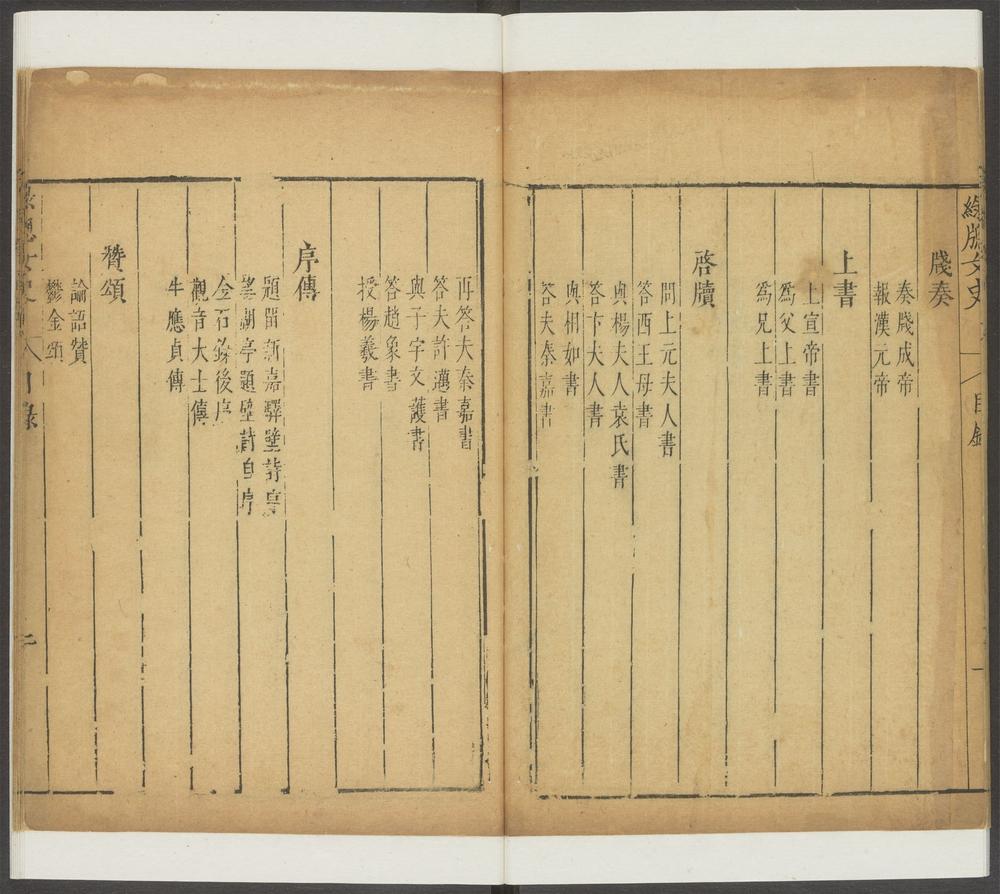 牋奏
奏牋成帝
報漢元帝
上書
上宣帝書
爲父上書
爲兄上書
啓牘
問上元夫人書
答西王母書
與楊夫人袁氏書
答卞夫人書
與相如書
答夫秦嘉書
再答夫秦嘉書
答夫許邁書
與子宇文護書
答趙象書
授楊羲書
序傳
題留新嘉驛壁詩序
鄱湖亭題壁詩自序
金石錄後序
觀音大士傳
牛應貞傳
贊頌
論語贊
鬱金頌
目錄
二